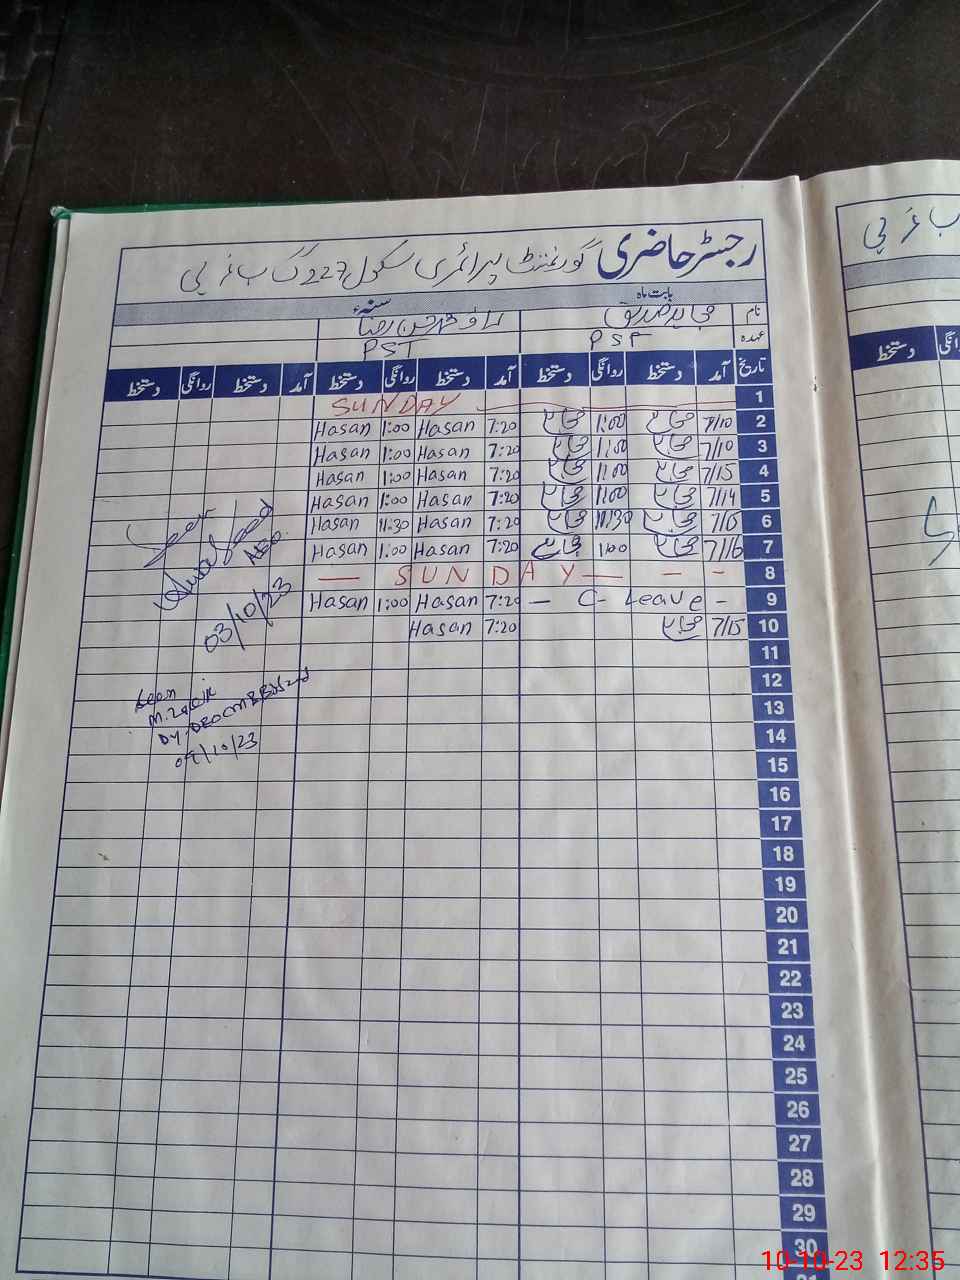 رجسٹر حاضری گورنمنٹ پرائمری سکول 227 گ ب غربی
بابت ماہ سنہء
نام مجاہد صدیق حسن رضا
عہدہ PST PST
تاریخ آمد دستخط روانگی دستخط آمد دستخط روانگی دستخط آمد دستخط روانگی دستخط
1 SUNDAY
2 7/10 مجاہد 1:00 مجاہد 7:20 Hasan 1:00 Hasan
3 7/10 مجاہد 1:00 مجاہد 7:20 Hasan 1:00 Hasan
4 7/15 مجاہد 1:00 مجاہد 7:20 Hasan 1:00 Hasan
5 7/14 مجاہد 1:00 مجاہد 7:20 Hasan 1:00 Hasan
6 7/15 مجاہد 11:30 مجاہد 7:20 Hasan 11:30 Hasan
7 7/16 مجاہد 1:00 مجاہد 7:20 Hasan 1:00 Hasan
8 — SUNDAY — — -
9 — C- Leave - 7:20 Hasan 1:00 Hasan
10 7/15 مجاہد 7:20 Hasan
11
12
13
14
15
16
17
18
19
20
21
22
23
24
25
26
27
28
29
30
Seen
AEO
03/10/23
Seen
09/10/23
ب غربی
روانگی دستخط
10-10-23 12:35